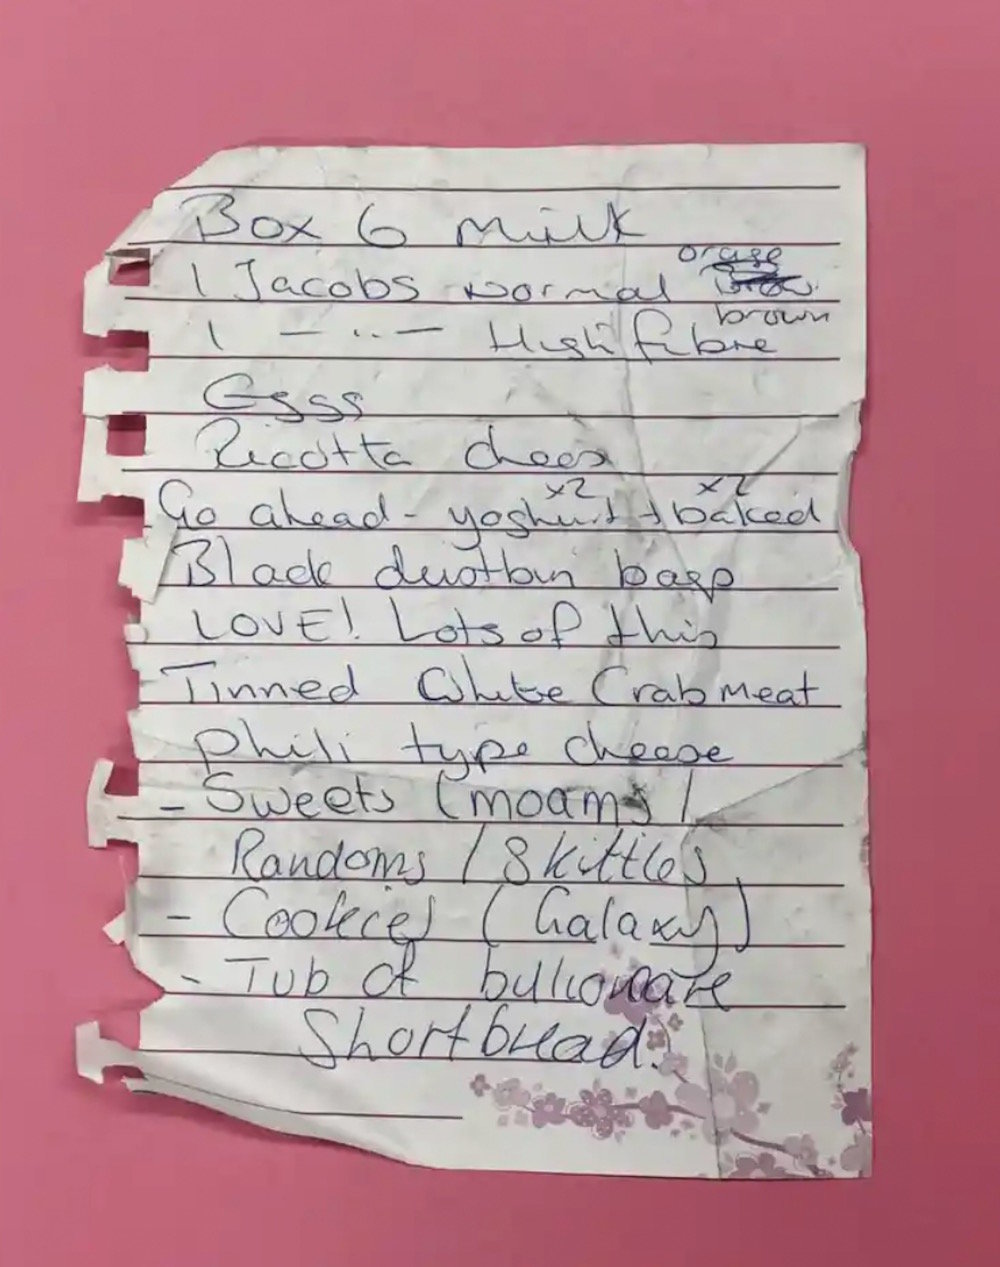 Box 6 milk
1 Jacobs normal orage
1 — ·· — High fibre brown
Eggs
Ricotta chees
Go ahead - yoghurt x2 + baked x2
Black dustbin bags
LOVE! Lots of this
Tinned White Crabmeat
Phili type cheese
- Sweets (moams /
Randoms / Skittles
- Cookies (Galaxy)
- Tub of billionare
Shortbread.